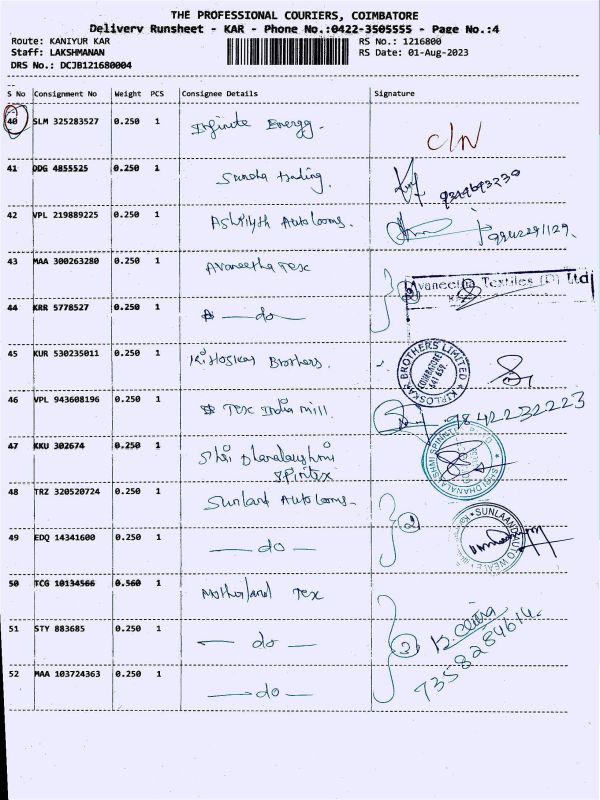 THE PROFESSIONAL COURIERS, COIMBATORE
Delivery Runsheet - KAR - Phone No.:0422-3505555 - Page No.:4
Route: KANIYUR KAR RS No.: 1216800
Staff: LAKSHMANAN RS Date: 01-Aug-2023
DRS No.: DCJB121680004
S No Consignment No Weight PCS Consignee Details Signature
40 SLM 325283527 0.250 1 Infinite Energy. C/N
41 DDG 4855525 0.250 1 Suncha trading.
42 VPL 219889225 0.250 1 Ashility Autolooms.
43 MAA 300263280 0.250 1 Avaneetha Tex 2 Avaneetha Textiles (P) Ltd
44 KRR 5778527 0.250 1 do
45 KUR 530235011 0.250 1 Kirloskar Brothers. KIRLOSKAR BROTHERS LIMITED COIMBATORE 641 659.
46 VPL 943608196 0.250 1 Tex India mill. 9842232223
47 KKU 302674 0.250 1 Shri Dhanalaxshmi
Spintex
48 TRZ 320520724 0.250 1 Sunland Autolooms. 2
49 EDQ 14341600 0.250 1 do SUNLAAND AUTO WEAVE
50 TCG 10134566 0.560 1 Motherland Tex
51 STY 883685 0.250 1 do 3 7358284614.
52 MAA 103724363 0.250 1 do